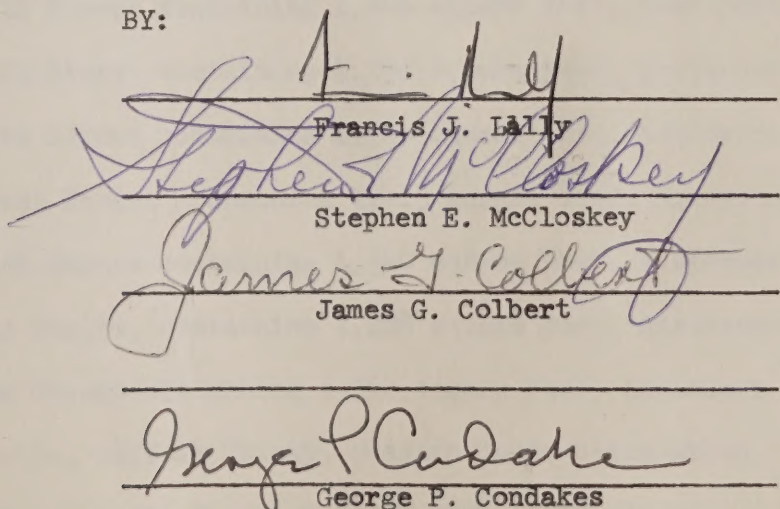 BY:
Francis J. Lally
Stephen E. McCloskey
Stephen E. McCloskey
James G. Colbert
James G. Colbert
George P Condakes
George P. Condakes